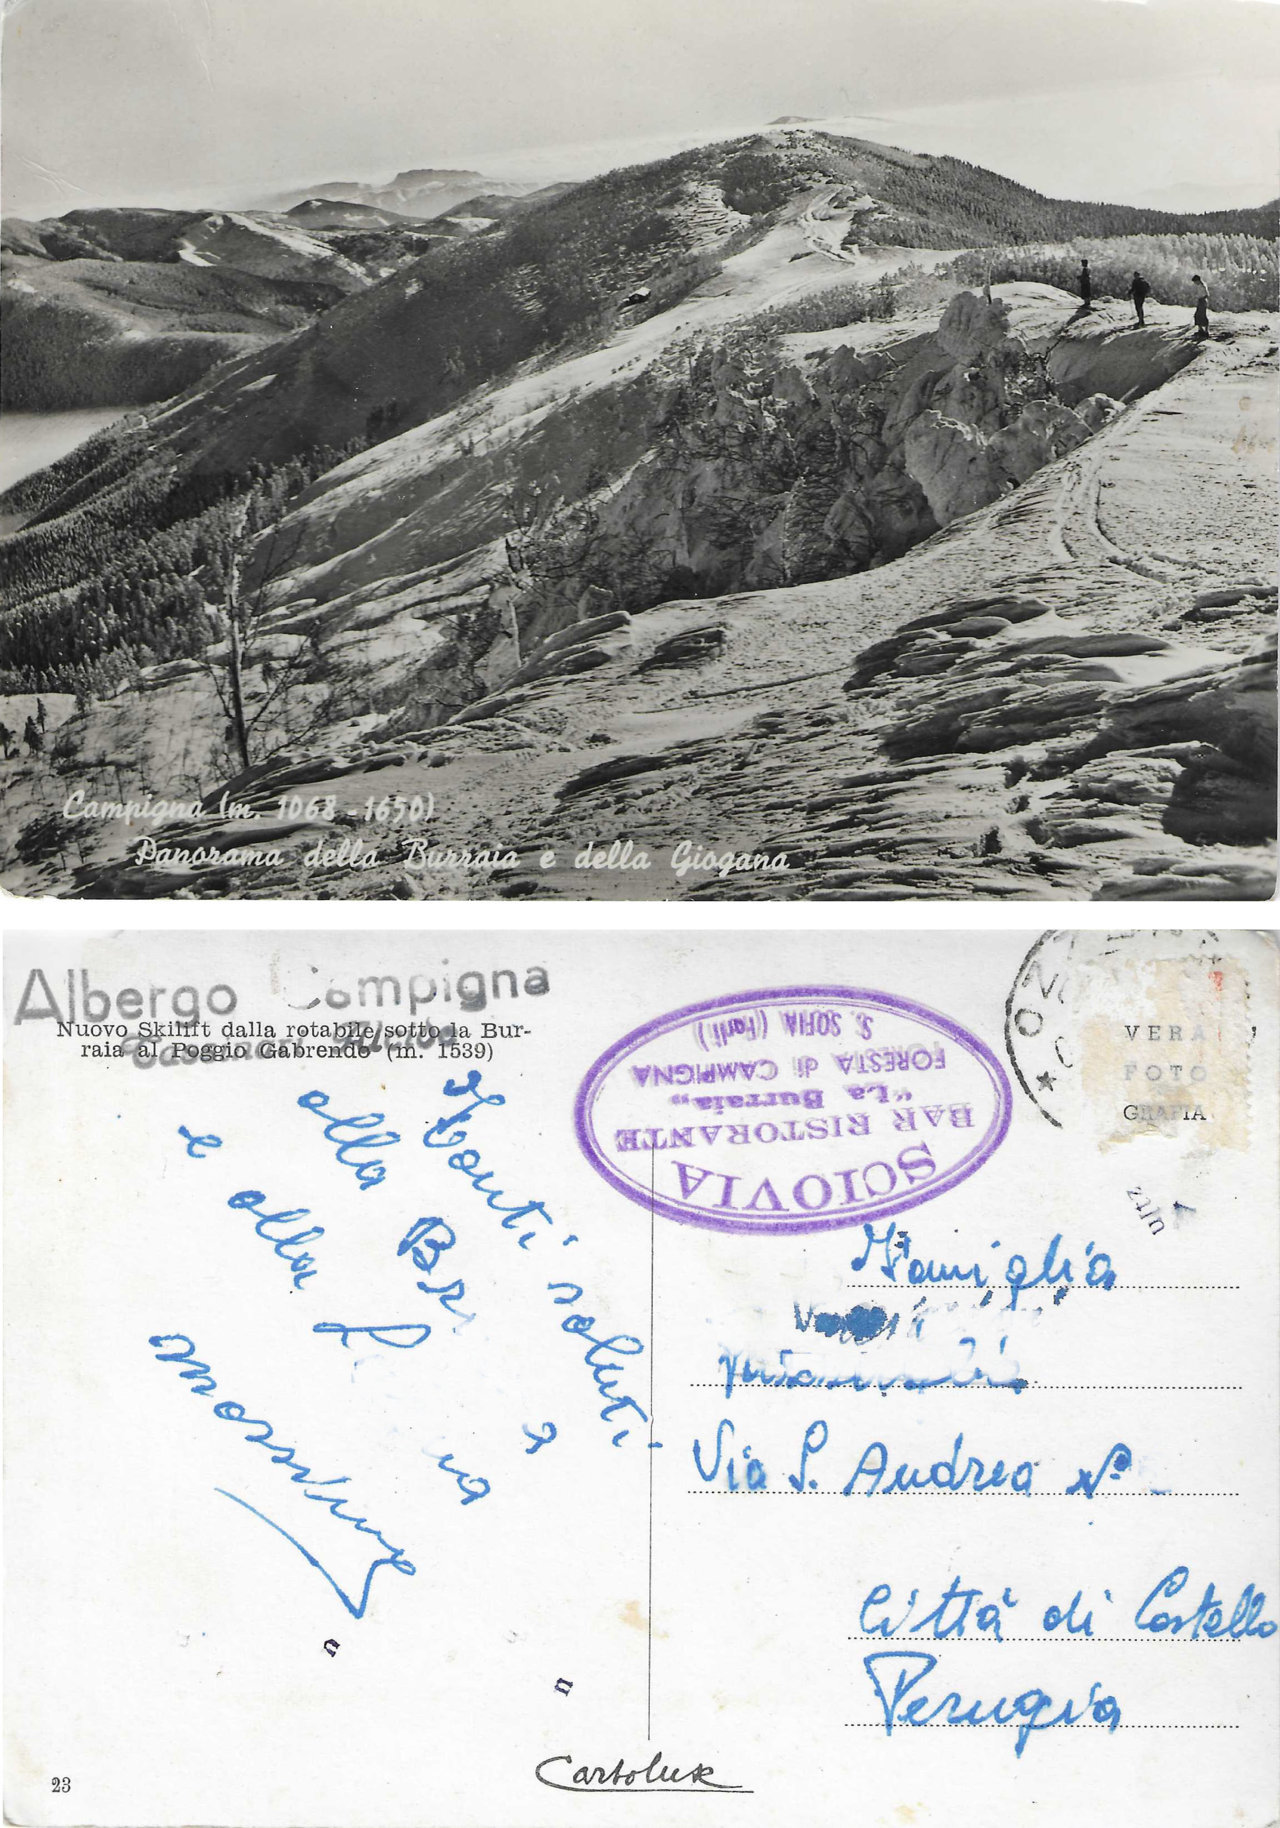 Campigna (m. 1068 - 1650)
Panorama della Burraia e della Giogana
Albergo Campigna
Nuovo Skilift dalla rotabile sotto la Bur-
raia al Poggio Gabrendo (m. 1539)
SCIOVIA
BAR RISTORANTE
"La Burraia"
FORESTA di CAMPIGNA
S. SOFIA (Forlì)
VERA
FOTO
GRAFIA
Tanti saluti
alla
e alla
Massimo
Famiglia
Via S. Andrea N°
Città di Castello
Perugia
Cartolux
23